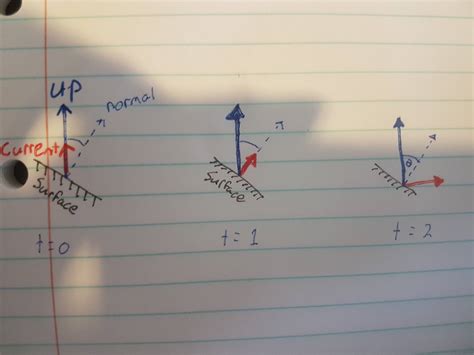 UP
normal
Current
Surface
t=0
Surface
t=1
θ
t=2